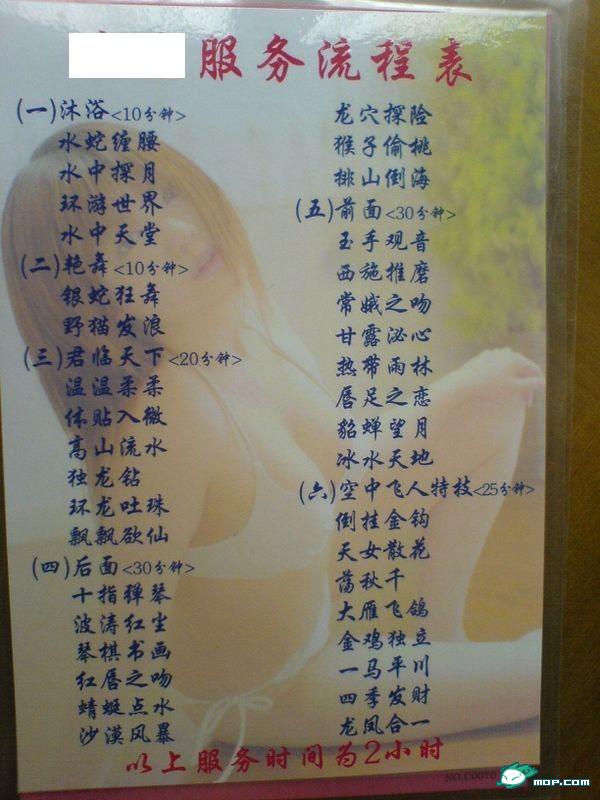 服务流程表
(一)沐浴<10分钟>
水蛇缠腰
水中探月
环游世界
水中天堂
(二)艳舞<10分钟>
银蛇狂舞
野猫发浪
(三)君临天下<20分钟>
温温柔柔
体贴入微
高山流水
独龙钻
环龙吐珠
飘飘欲仙
(四)后面<30分钟>
十指弹琴
波涛红尘
琴棋书画
红唇之吻
蜻蜓点水
沙漠风暴
龙穴探险
猴子偷桃
排山倒海
(五)前面<30分钟>
玉手观音
西施推磨
常娥之吻
甘露泌心
热带雨林
唇足之恋
貂蝉望月
冰水天地
(六)空中飞人特技<25分钟>
倒挂金钩
天女散花
荡秋千
大雁飞鸽
金鸡独立
一马平川
四季发财
龙凤合一
以上服务时间为2小时
mop.com